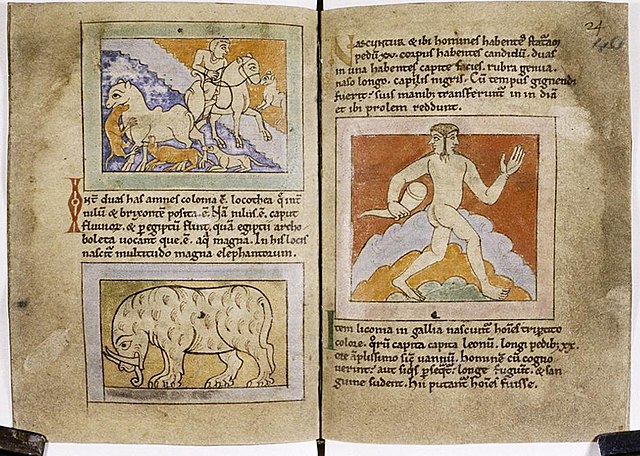 Int̄ duas has amnes colonia ē. locothea q̄ int̄
nilū & brixontē posita .ē. Nā nilus .ē. caput
fluuior̄. & p egiptū fluit. quā egiptii archo
boleta uocant que .ē. aq̄ magna. In his locis
nascit̄ multitudo magna elephantorum.
24
Nascuntur & ibi homines habentes staturā
pedū .xv. corpus habentes candidū. duas
in una habentes capite facies. rubra genua.
naso longo. capillis nigris. Cū tempus gignendi
fuerit: suis manibꝫ transferunt̄ in in diā
et ibi prolem reddunt.
Item liconia in gallia nascunt̄ hoīes tripertito
colore. q̄rū capita capita leonū. longi pedibꝫ xx.
ore āplissimo sic̄ uannū. hominē cū cogno
uerint: aut siqs p̄seqt̄. longe fugiunt. & san
guine sudent. Hii putant̄ hoīes fuisse.